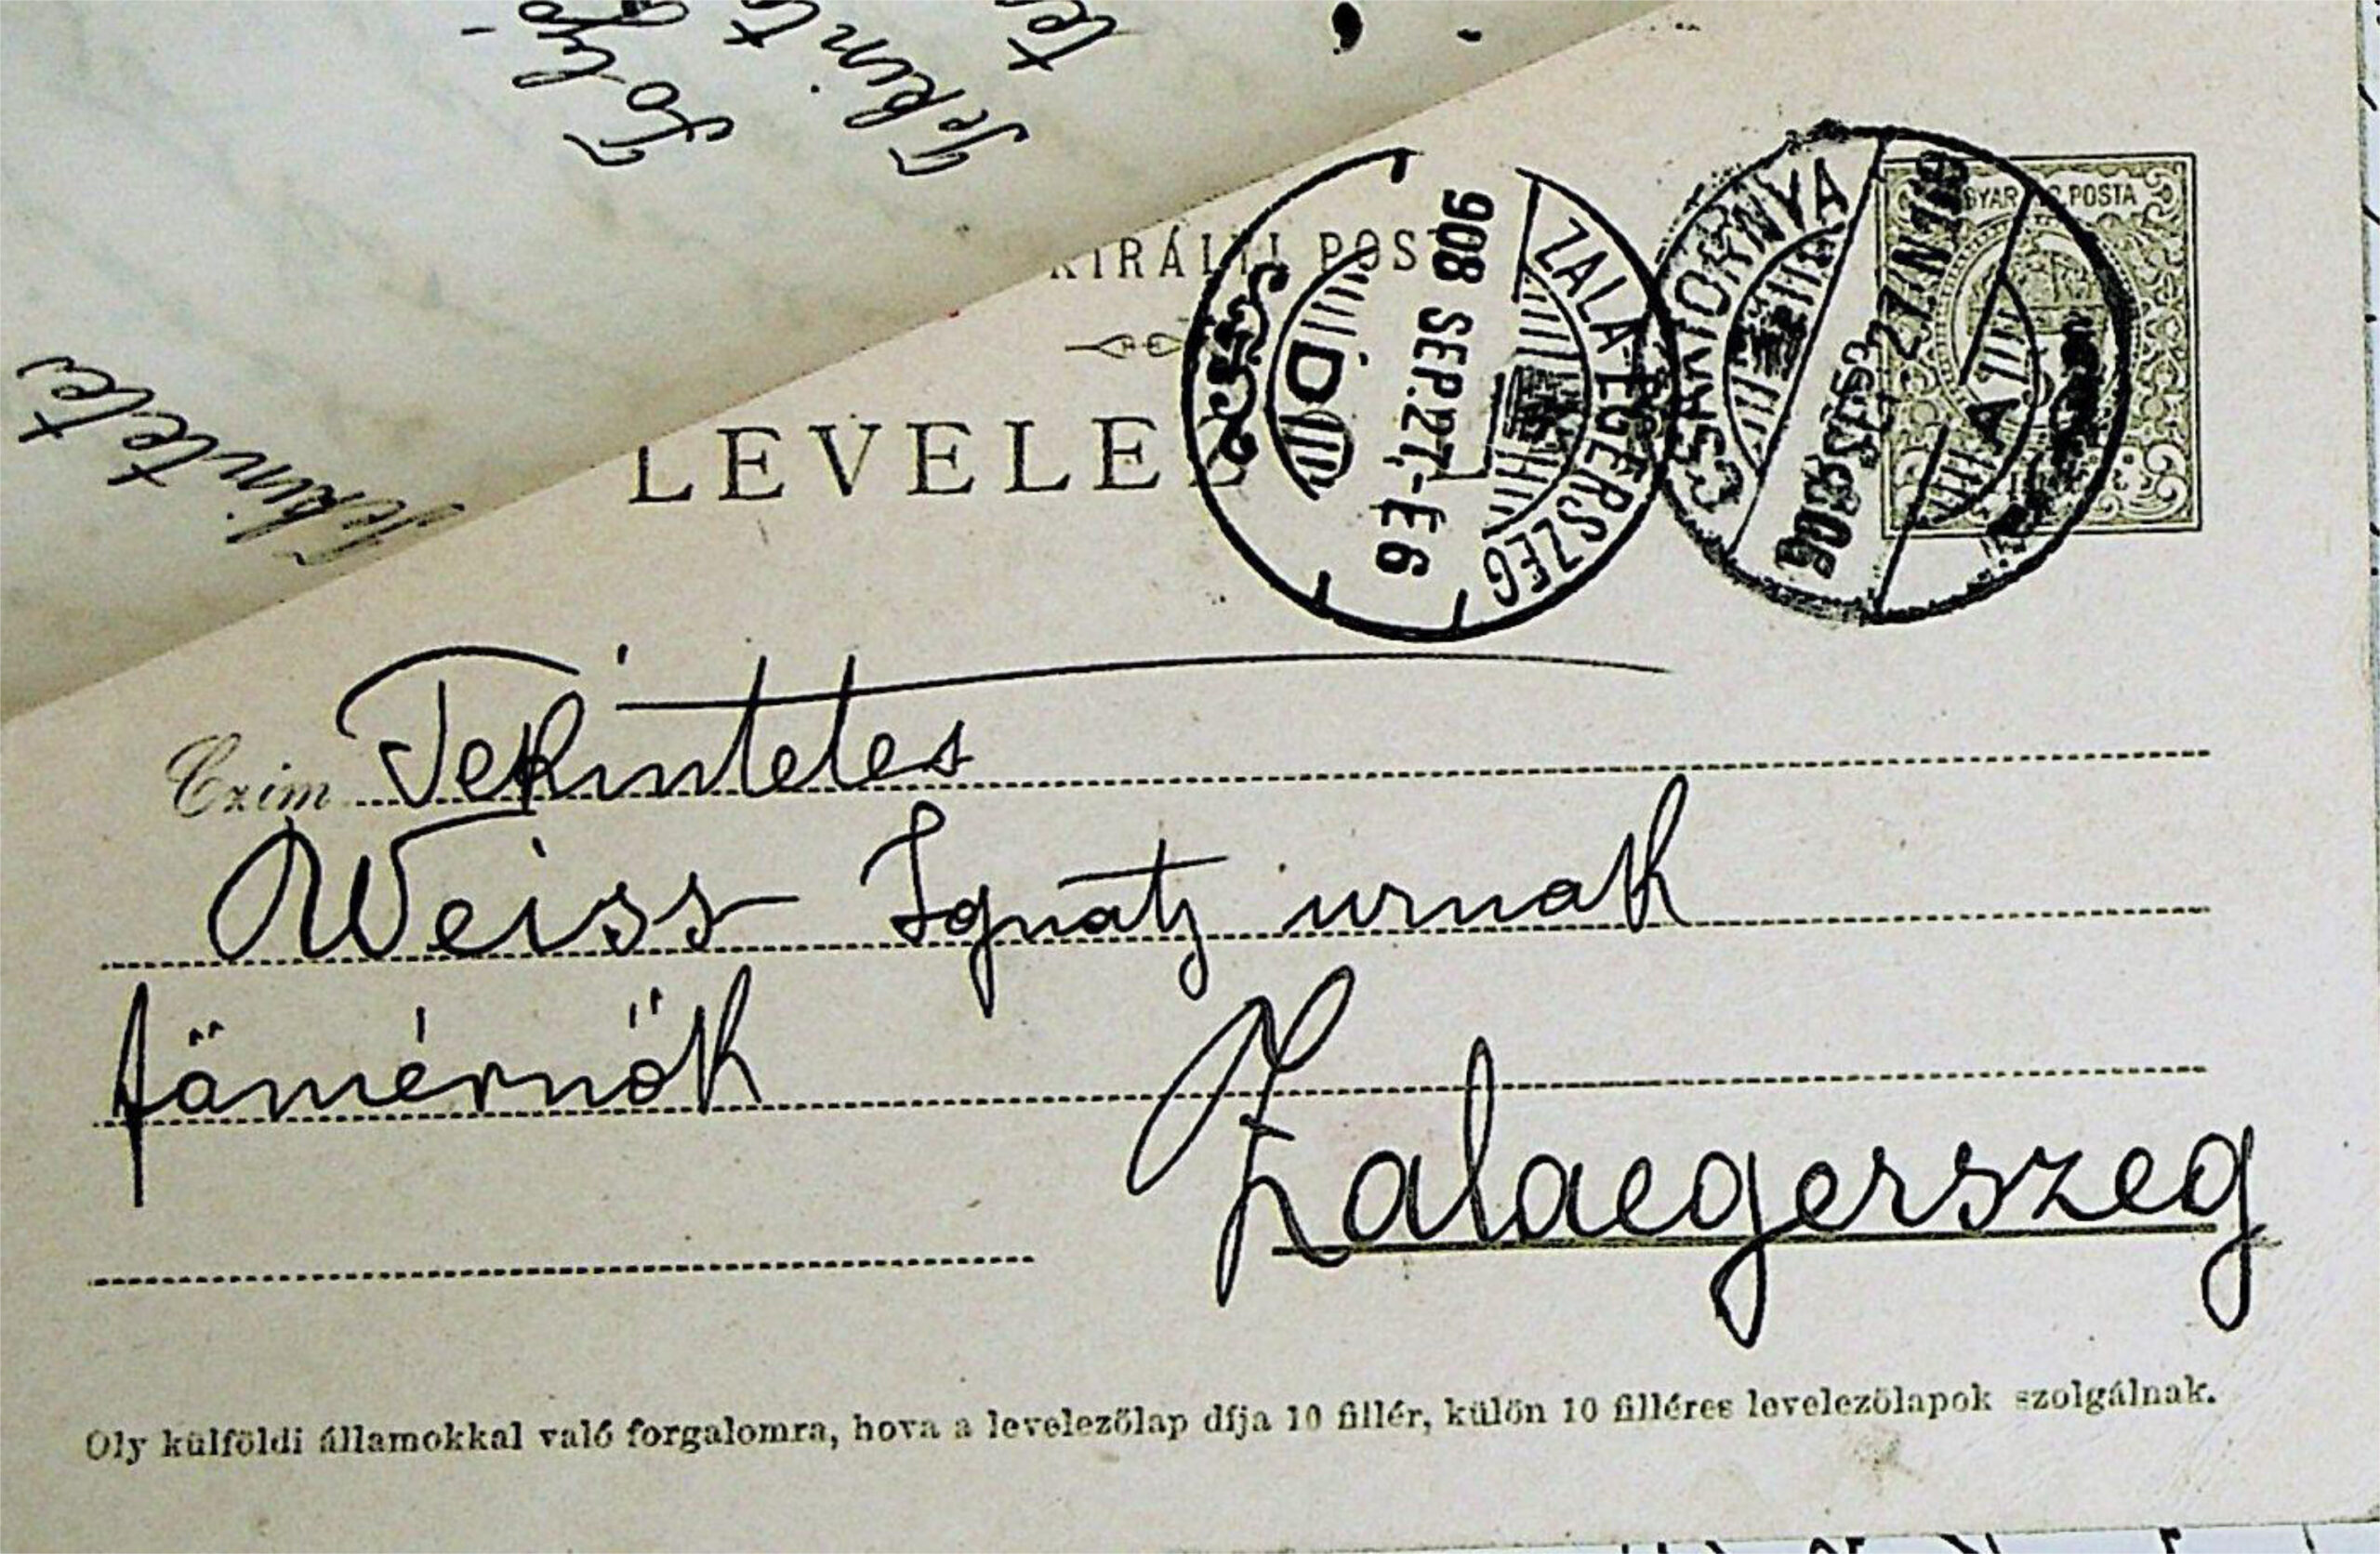 Tekintetes
MAGYAR KIR. POSTA
KIRÁLYI POS
LEVELEZ L
ZALA-EGERSZEG
908 SEP.27.-E6
D
CSÁKTORNYA
A
Czim Tekintetes
Weiss Ignatz urnak
főmérnök
Zalaegerszeg
Oly külföldi államokkal való forgalomra, hova a levelezőlap díja 10 fillér, külön 10 filléres levelezőlapok szolgálnak.